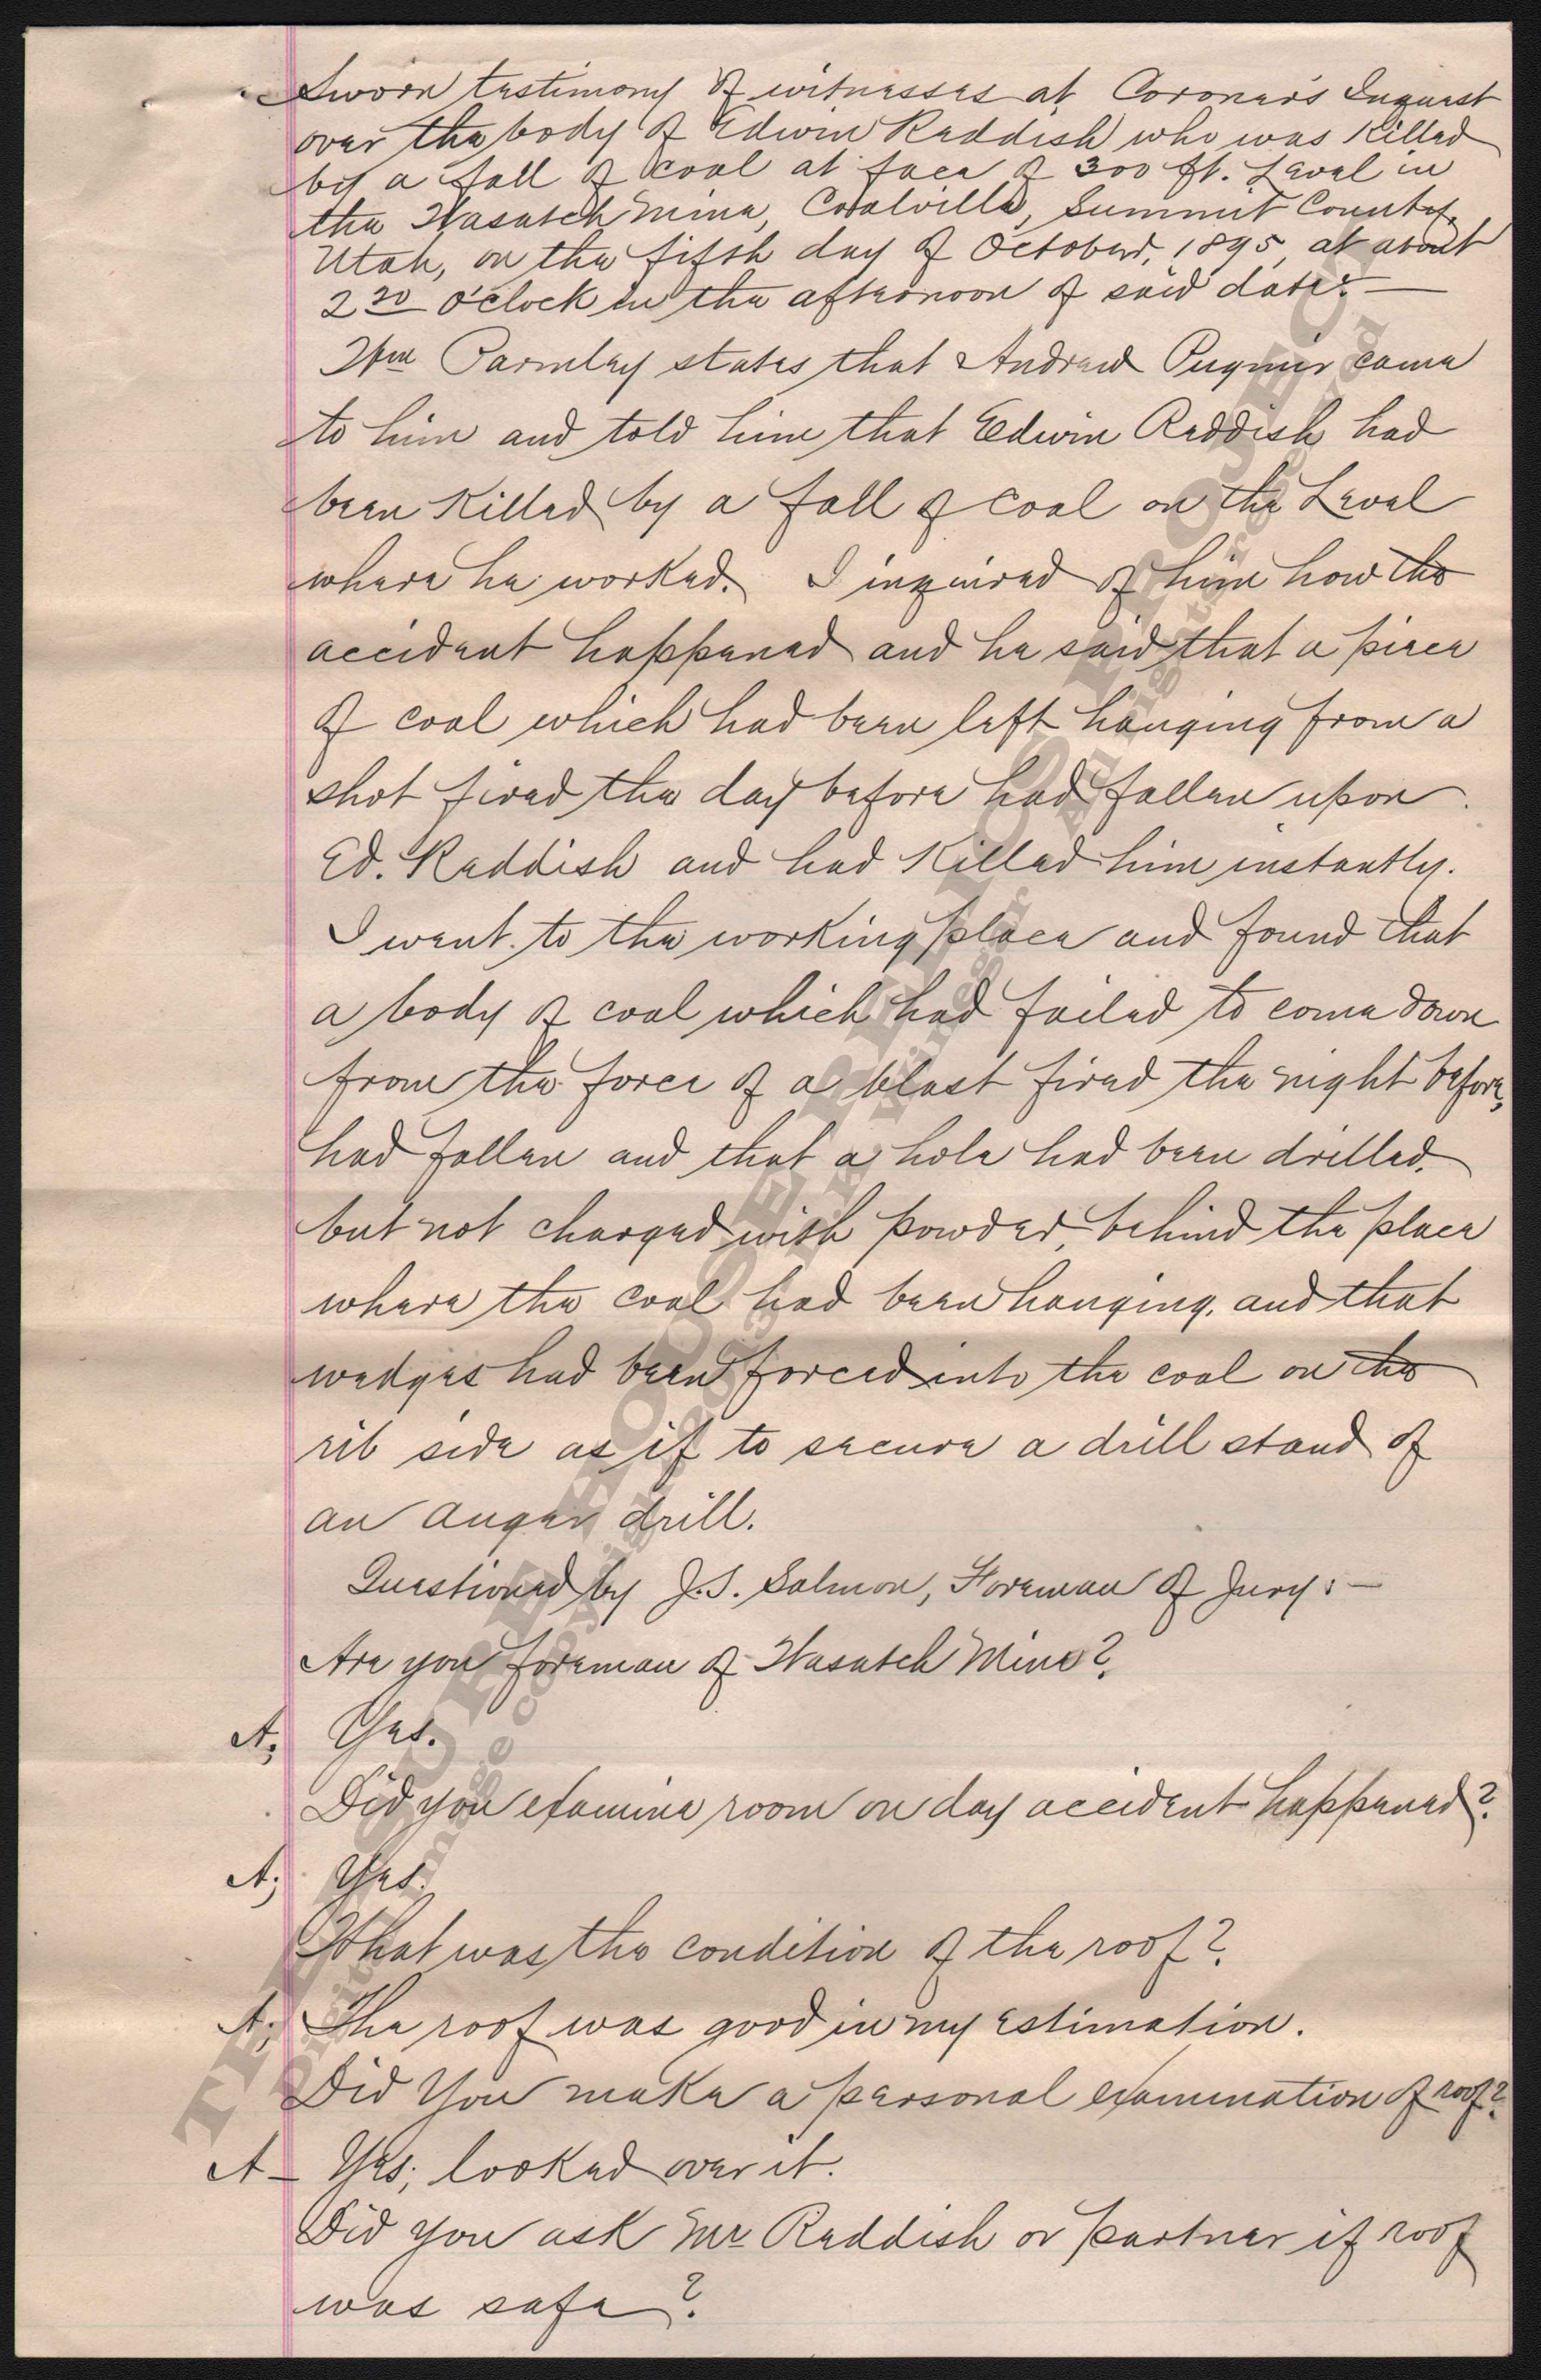 Sworn testimony of witnesses at Coroner's Inquest
over the body of Edwin Reddish who was Killed
by a fall of coal at face of 300 ft. Level in
the Wasatch Mine, Coalville, Summit County,
Utah, on the fifth day of October, 1895, at about
2 30 O'clock in the afternoon of said date:—
Wm Parmley states that Andrew Pugmir came
to him and told him that Edwin Reddish had
been Killed by a fall of coal on the Level
where he worked. I inquired of him how the
accident happened and he said that a piece
of coal which had been left hanging from a
shot fired the day before had fallen upon
Ed. Reddish and had Killed him instantly.
I went to the working place and found that
a body of coal which had failed to come down
from the force of a blast fired the night before,
had fallen and that a hole had been drilled,
but not charged with powder, behind the place
where the coal had been hanging, and that
wedges had been forced into the coal on the
rib side as if to secure a drill stand of
an auger drill.
Questioned by J.S. Salmon, Foreman of Jury:—
Are you foreman of Wasatch Mine?
A; Yes.
Did you examine room on day accident happened?
A; Yes.
What was the condition of the roof?
A; The roof was good in my estimation.
Did You make a personal examination of roof?
A— Yes; looked over it.
Did you ask Mr Reddish or partner if roof
was safe?
THE TREASURE HOUSE RELICS PROJECT